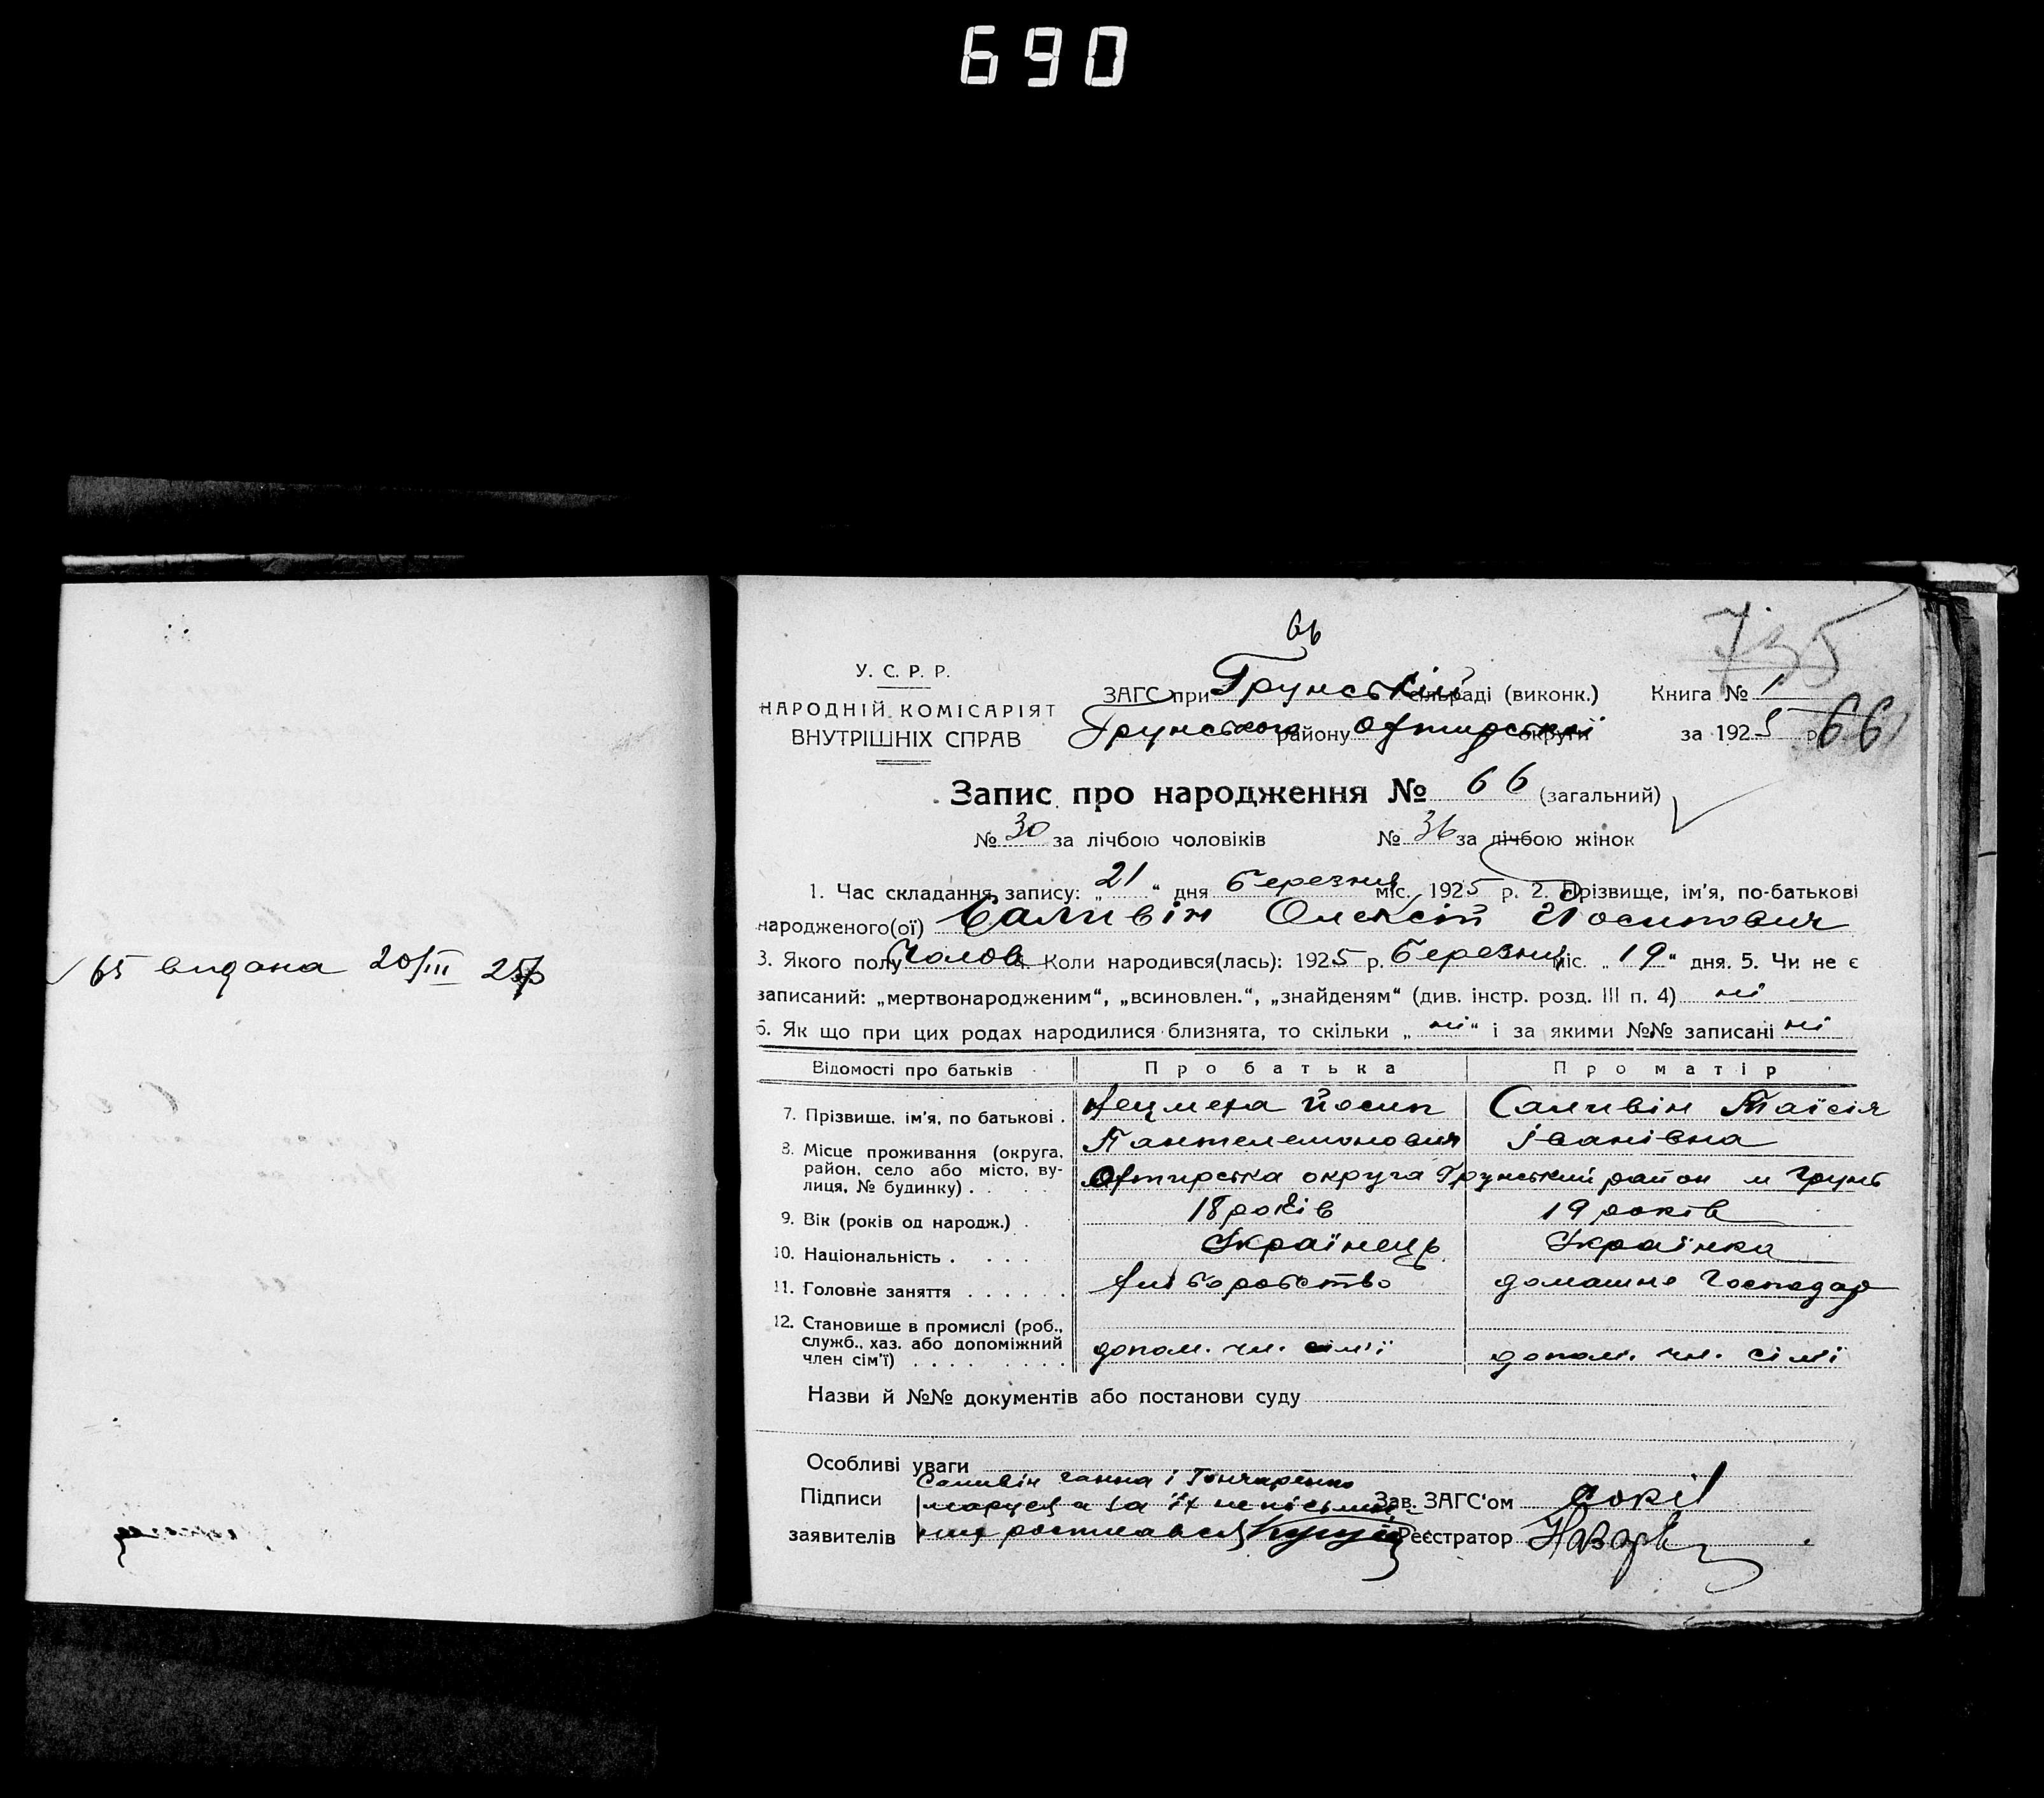 690
65 видана 20/III 25р
66
735
У. С. Р. Р.
НАРОДНІЙ КОМІСАРІЯТ
ВНУТРІШНІХ СПРАВ
ЗАГС при Грунській сільраді (виконк.) Книга № 1
Грунського району Охтирської округи за 1925 р. 66
Запис про народження № 66 (загальний)
№ 30 за лічбою чоловіків № 36 за лічбою жінок
1. Час складання запису: „21“ дня березня міс. 1925 р. 2. Прізвище, ім'я, по-батькові
народженого(ої) Саливін Олексій Йосипович
3. Якого полу Чолов. 4. Коли народився(лась): 1925 р. березня міс. „19“ дня. 5. Чи не є
записаний: „мертвонародженим“, „всиновлен.“, „знайденям“ (див. інстр. розд. III п. 4) ні
6. Як що при цих родах народилися близнята, то скільки „ні“ і за якими №№ записані ні
Відомості про батьків Про батька Про матір
7. Прізвище, ім'я, по батькові . Йосип Саливін Таїсія
Пантелемонович Іванівна
8. Місце проживання (округа, район, село або місто, вулиця, № будинку) . . . . Охтирська округа Грунський район м Грунь
9. Вік (років од народж.) . 18 років 19 років
10. Національність . . . . Українець Українка
11. Головне заняття . . . . . . хліборобство домашнє господар
12. Становище в промислі (роб.,
служб., хаз. або допоміжний
член сім'ї) . . . . . . . . допом. чл. сімї допом. чл. сімї
Назви й №№ документів або постанови суду
Особливі уваги
Саливін Ганна і Гончаренко
Підписи Маруся а за їх неписьмен- Зав. ЗАГС'ом Сокіл
заявителів них росписався Реєстратор